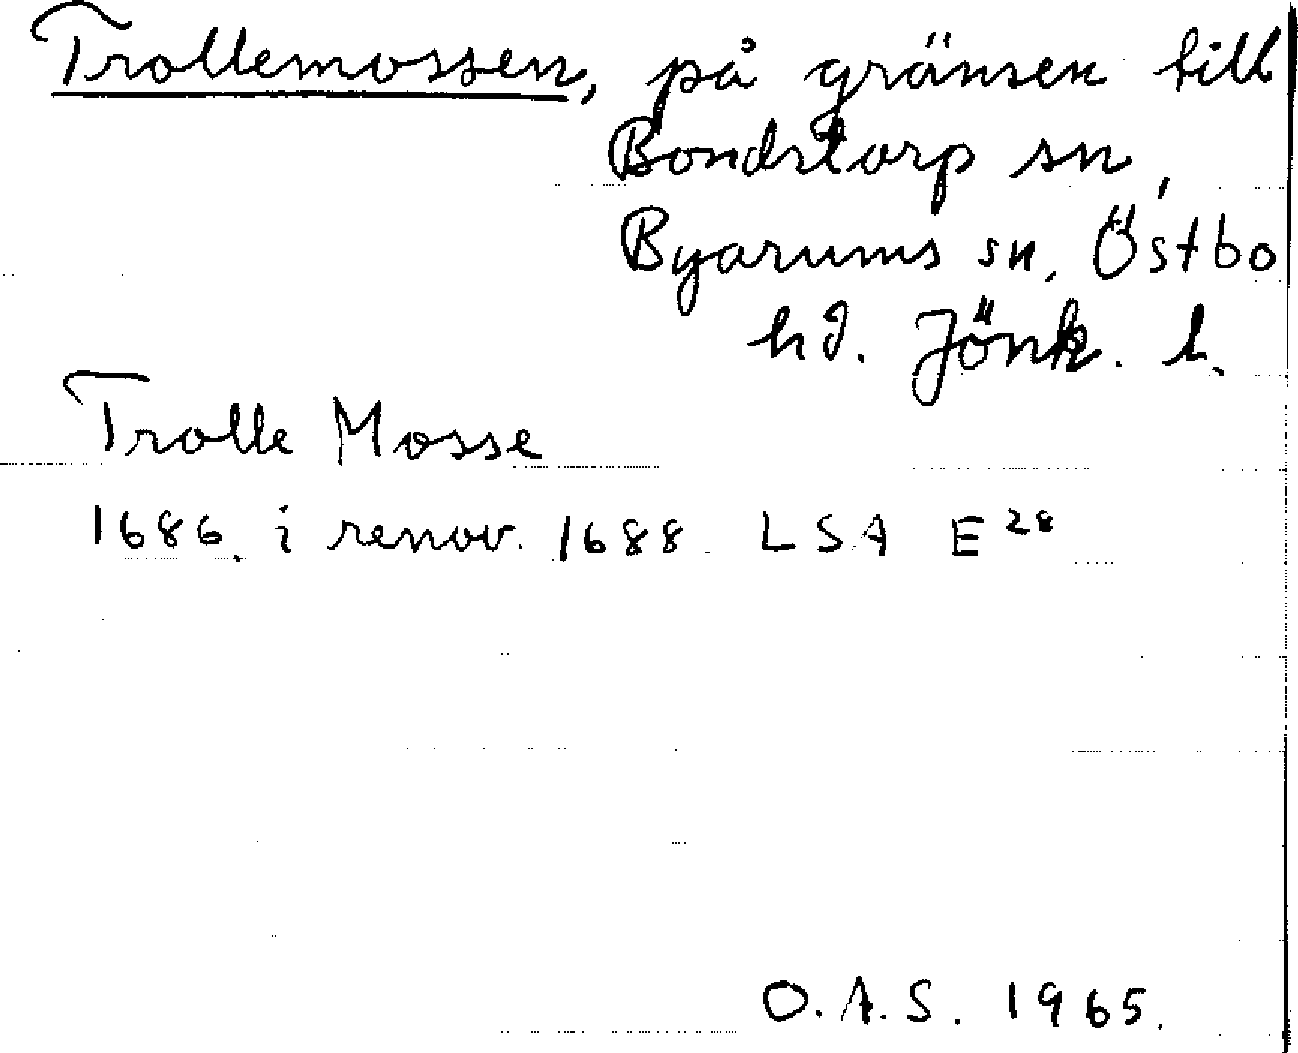 Trollemossen, på gränsen till
Bondstorp sn,
Byarums sn, Östbo
hd. Jönk. l.
Trolle Mosse
1686. i renov. 1688 LSA E²⁸
O.A.S. 1965.